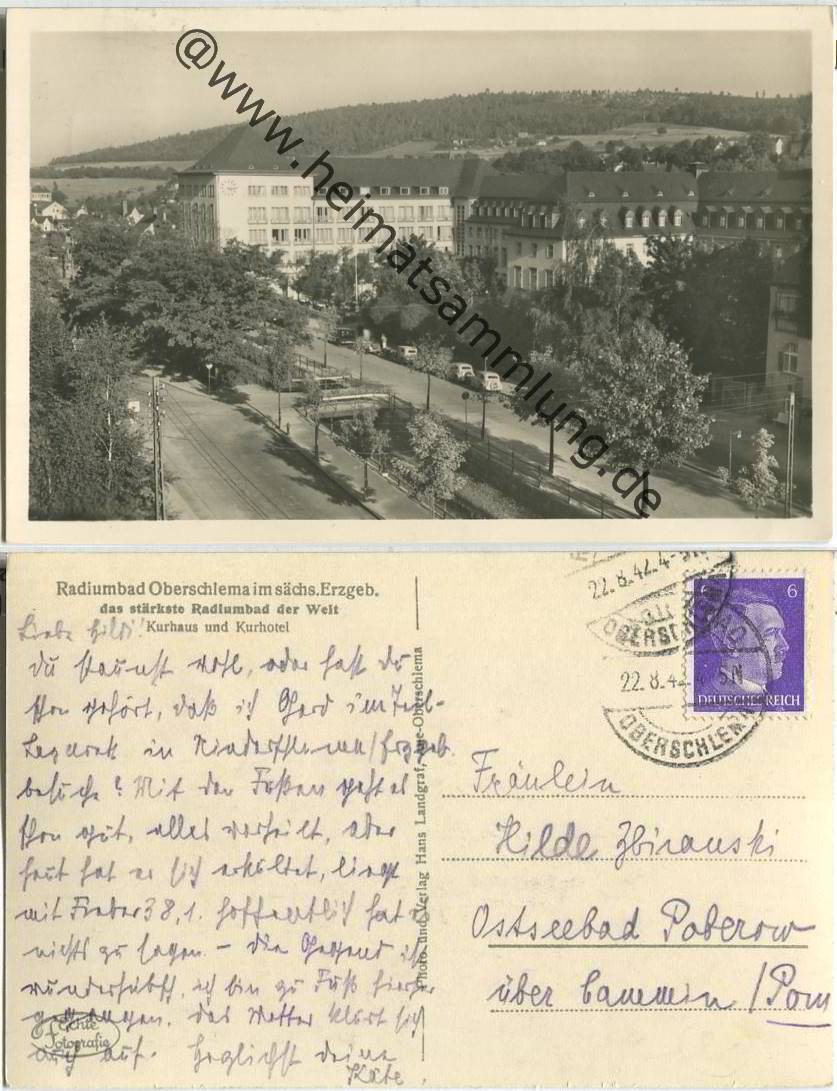 @www.heimatsammlung.de
Radiumbad Oberschlema im sächs. Erzgeb.
das stärkste Radiumbad der Welt
Kurhaus und Kurhotel
Liebe Hilde!
Du staunst wohl, oder hast du
schon gehört, daß ich Gerd im
Lazarett in Niederschlema/Erzgeb.
besuche? Mit den Füßen geht es
schon gut, alles verheilt, aber
heut hat er sich erkältet, liegt
mit Fieber 38,1. Hoffentlich hat es
nichts zu sagen. – Die Gegend ist
wunderhübsch, ich bin zu Fuß hierher
gegangen. Das Wetter klärt sich
auch auf. Herzlichst deine
Käte.
Echte
Fotografie
Photo und Verlag Hans Landgraf, Aue-Oberschlema
22.8.42.4-5N
OBERSCHLEMA
22.8.42.4-5N
OBERSCHLEMA
6
DEUTSCHES REICH
Fräulein
Hilde Zbiranski
Ostseebad Poberow
über Cammin/Pom